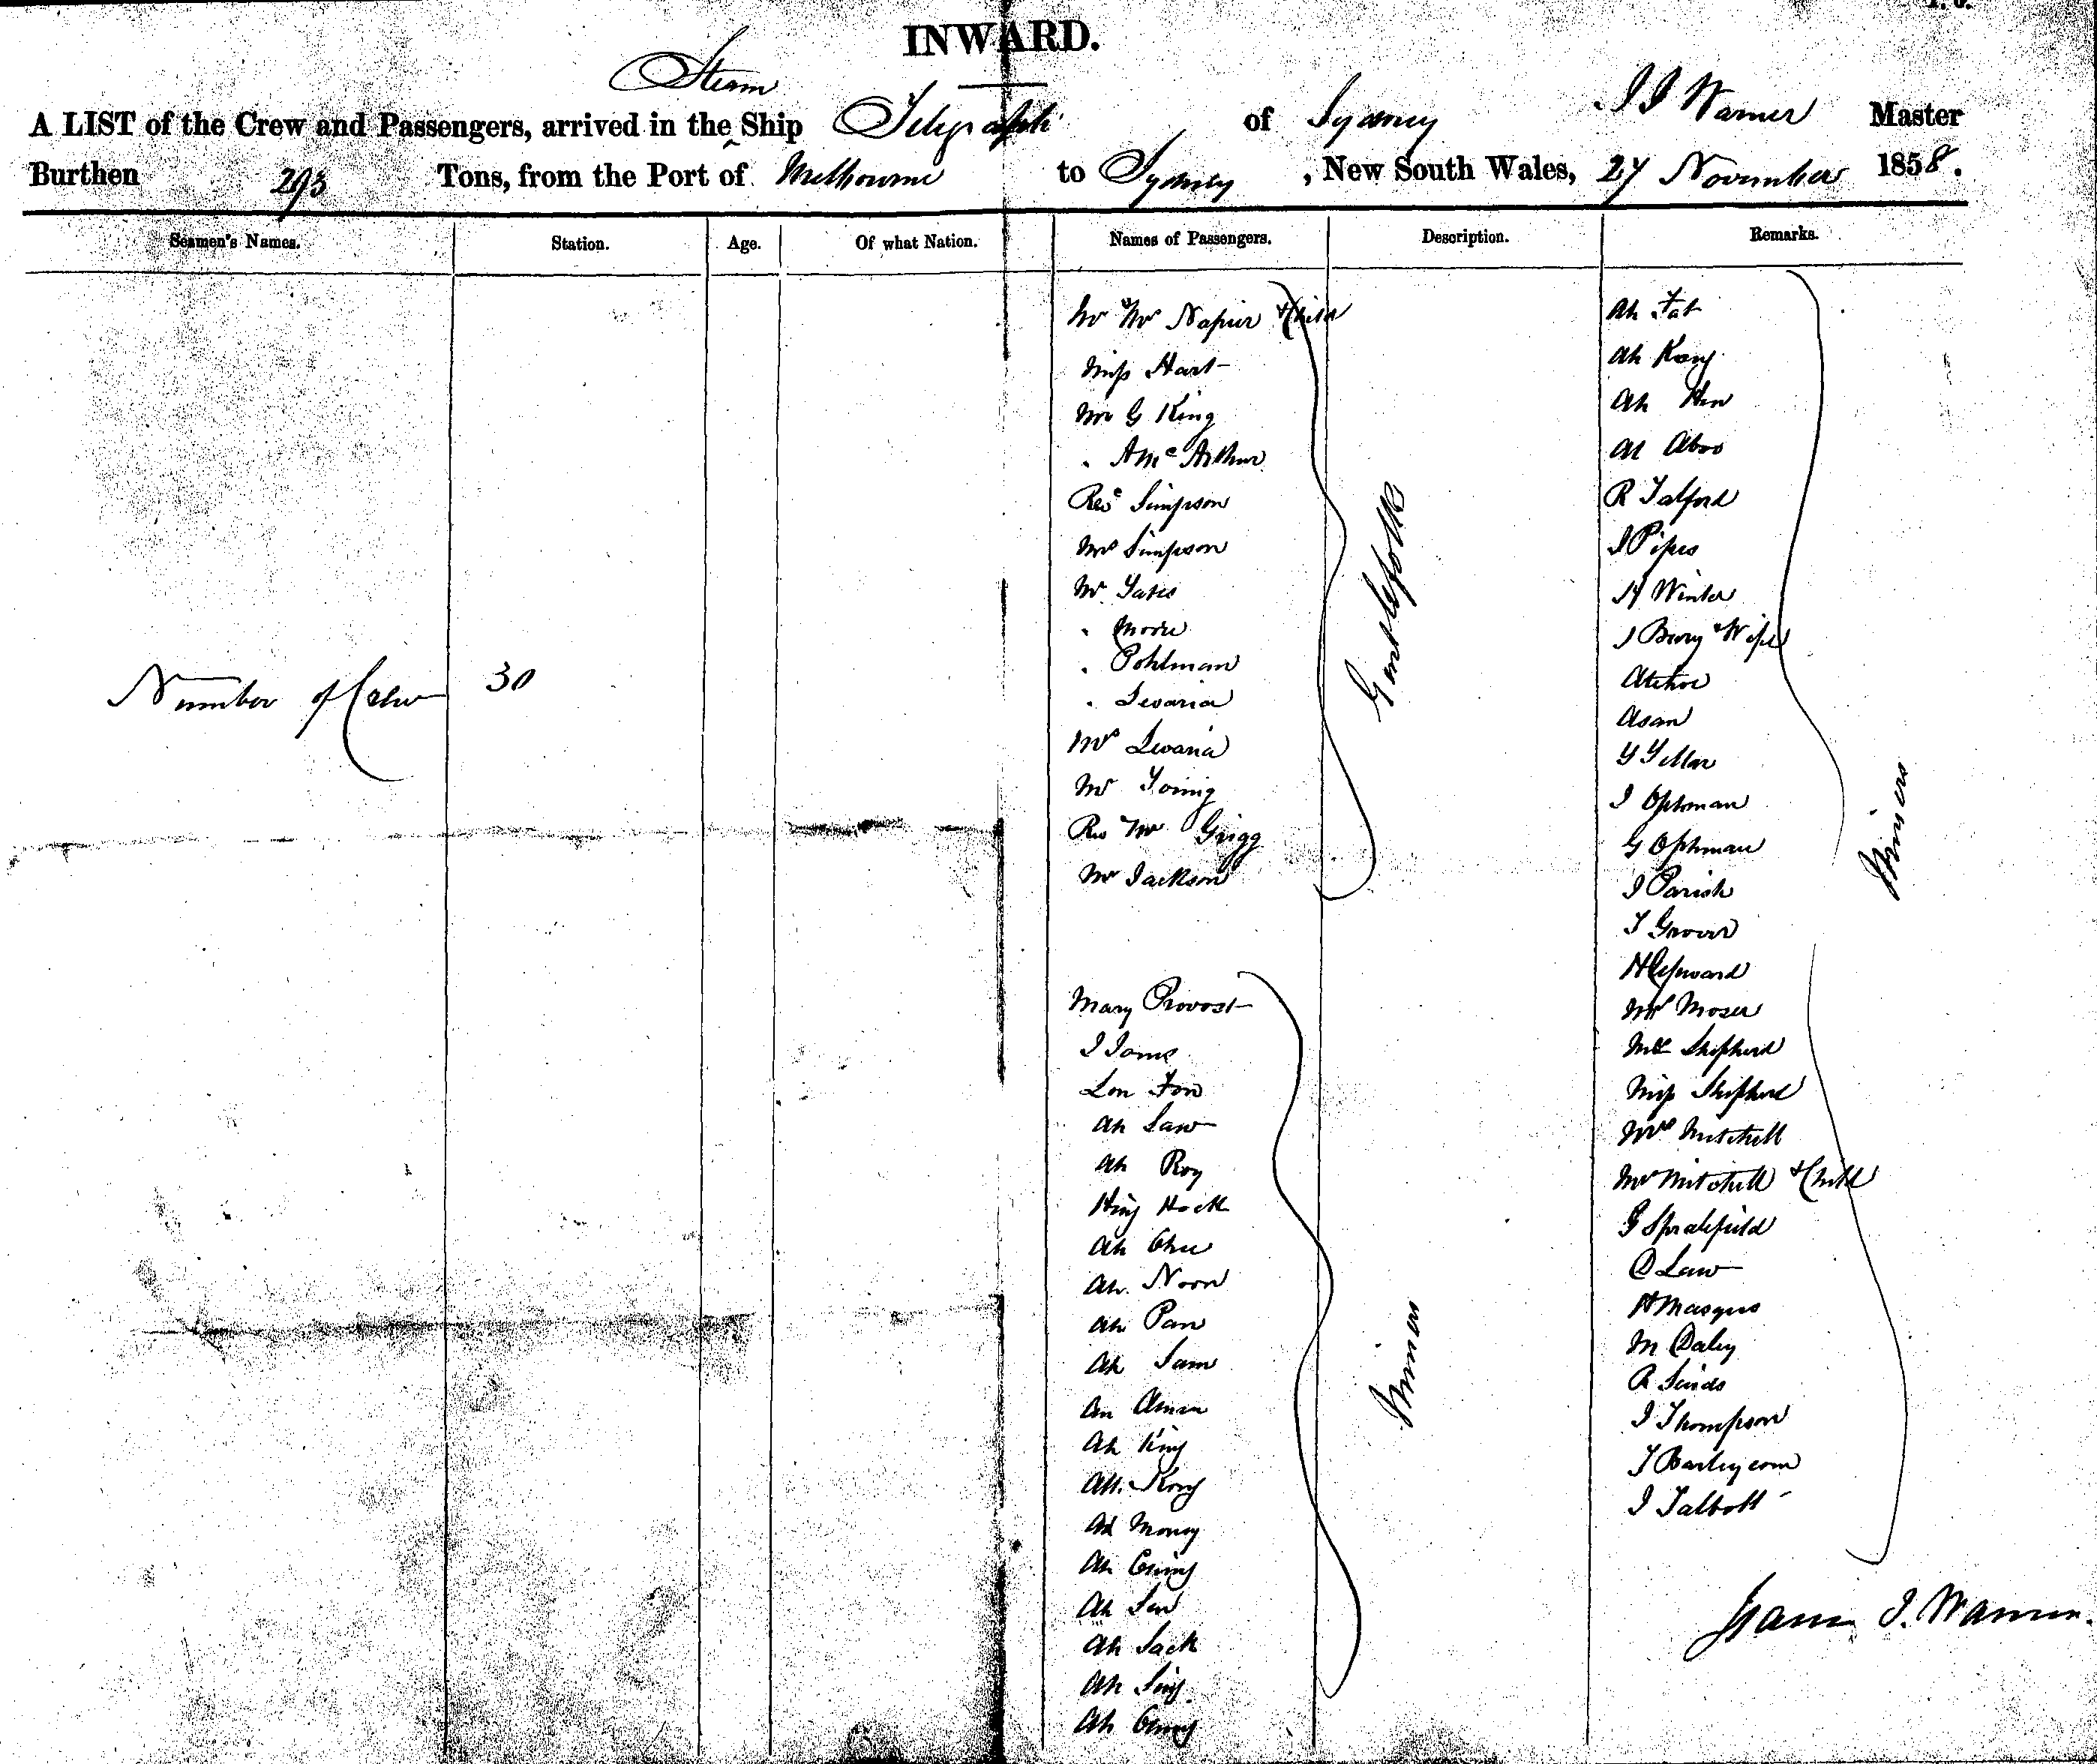 INWARD.
Steam
A LIST of the Crew and Passengers, arrived in the Ship Telegraph of Sydney J J Warner Master
Burthen 293 Tons, from the Port of Melbourne to Sydney, New South Wales, 27 November 1858.
Seamen's Names. Station. Age. Of what Nation. Names of Passengers. Description. Remarks.
Number of Crew 30
Mr Mrs Napier & Child
Miss Hart
Mr G King
" A McArthur
Revd Simpson
Mrs Simpson
Mr Yates
" Moore
" Pohlman
" Levaria
Mrs Levaria
Mr Young
Rev Mr Grigg
Mr Jackson
Gentlefolk
Mary Provost
J Jame
Lon Fon
Ah Law
Ah Roy
Hing Hock
Ah Chu
Ah Noon
Ah Pan
Ah Sam
An Aman
Ah King
Ah Kong
Ah Mong
Ah
Ah
Ah Sack
Ah Sing
Ah
Miners
Ah Fat
Ah Kong
Ah Hen
Ah Aboo
R Talford
J Pipes
H Winter
J Bury & Wife
Atchoe
Asan
J Ophman
G Ophman
J Parish
T Grover
H
Mr Moser
Mrs Shepherd
Miss Shepherd
Mrs Mitchell
Mr Mitchell & Child
G
D Law
H Masques
M Daley
R Sinds
J Thompson
J Barleycorn
J Talbott
Miners
J. Warner.